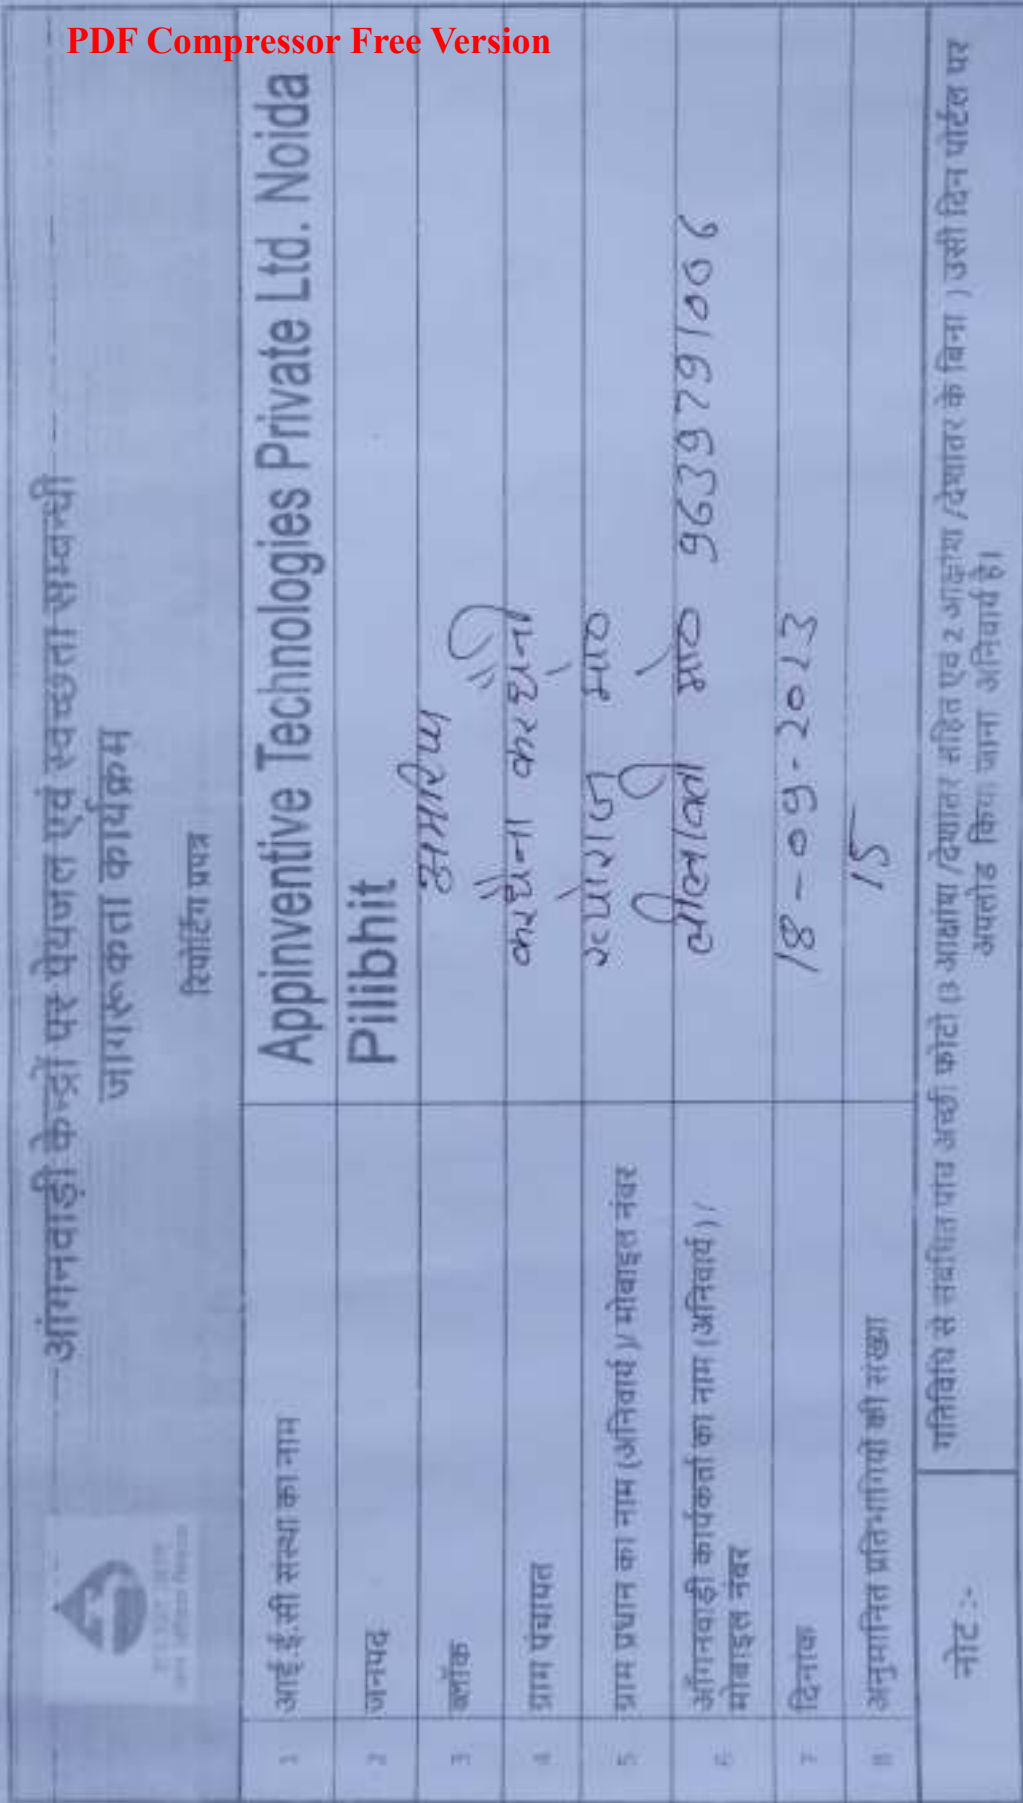 PDF Compressor Free Version
आंगनवाड़ी केन्द्रों पर पेयजल एवं स्वच्छता सम्बन्धी
जागरूकता कार्यक्रम
रिपोर्टिंग प्रपत्र
1 आई.ई.सी संस्था का नाम Appinventive Technologies Private Ltd. Noida
2 जनपद Pilibhit
3 ब्लॉक अमरिया
4 ग्राम पंचायत
5 ग्राम प्रधान का नाम (अनिवार्य)/ मोबाइल नंबर मो०
6 ऑगनवाड़ी कार्यकर्ता का नाम (अनिवार्य) / लीलावती मो० 9639791006
मोबाइल नंबर
7 दिनांक 18-09-2023
8 अनुमानित प्रतिभागियों की संख्या 15
नोट :- गतिविधि से संबंधित पांच अच्छी फोटो (3 अक्षांश /देशांतर सहित एवं 2 अक्षांश /देशांतर के बिना ) उसी दिन पोर्टल पर
अपलोड किया जाना अनिवार्य है।